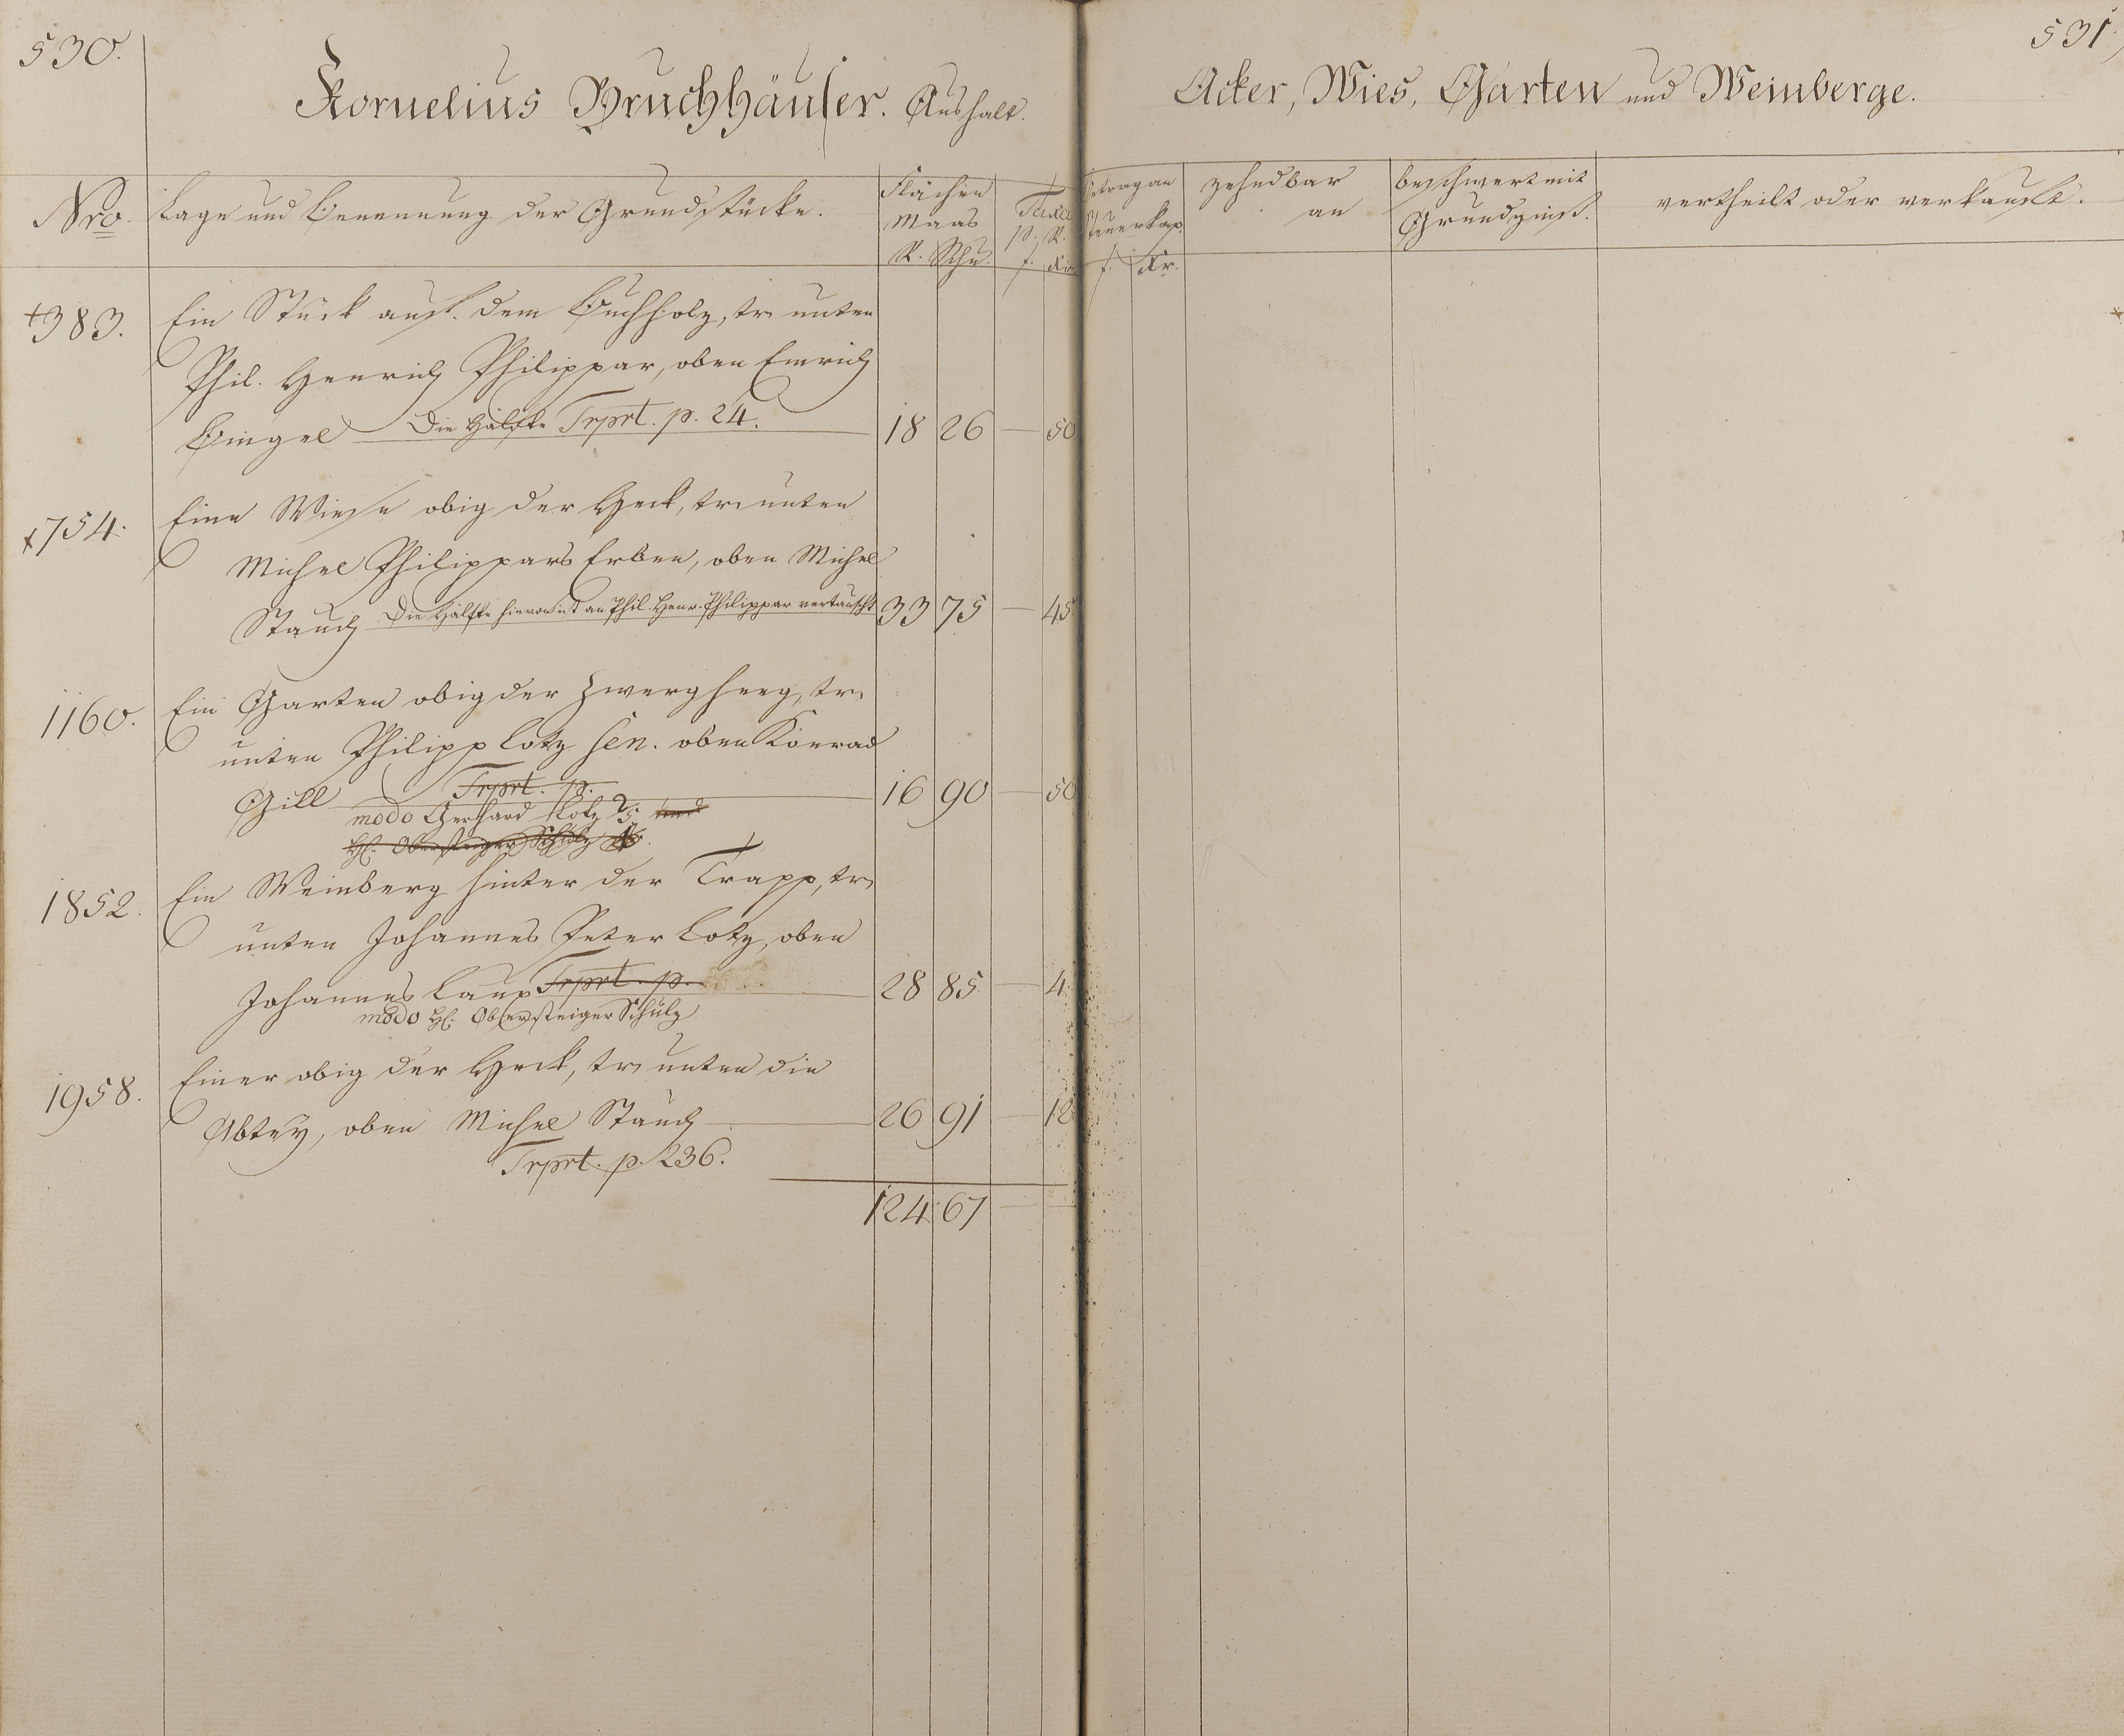 530.
Kornelius Bruchhäuser. Aushalt.
Nro. Lage und Benennung der Grundstücke. Flächen Maas R. Schu. Taxa p. R. f. Kr.
+383. Ein Stück auf. dem Buchholz, tr. unten
Phil. Henrich Philippar, oben Emrich
Bingel Die Hälfte Trprt. p. 24. 18 26 — 50
+754. Eine Wiese obig der Heck, tr. unten
Michel Philippars Erben, oben Michel
Stauch Die Hälfte hievon ist an Phil. Henr. Philippar vertauscht 33 75 — 45
1160. Ein Garten obig der Zwergheeg, tr.
unten Philipp Lotz sen. oben Konrad
Gill Trprt. p. 16 90 — 50
modo Gerhard Lotz und
H. Obersteiger Schulz
1852. Ein Weinberg hinter der Trapp, tr.
unten Johannes Peter Lotz, oben
Johannes Laux Trprt. p. 28 85 — 4
modo H. Obersteiger Schulz
1958. Einer obig der Heck, tr. unten die
Abtey, oben Michel Stauch 26 91 — 12
Trprt. p. 236.
124 67
531.
Acker, Wies, Garten und Weinberge.
Betrag an Steuerkap. f. Kr. zehndbar an beschwert mit Grundzinß. vertheilt oder verkauft.